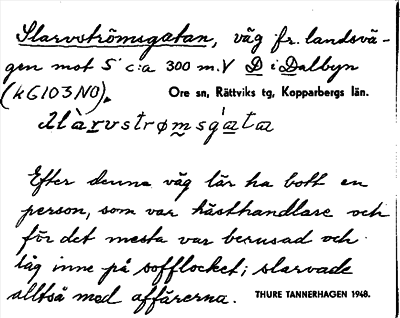 Slarvströmsgatan, väg fr. landsvä-
gen mot S c:a 300 m. V D i Dalbyn
(kG103NO).
Ore sn, Rättviks tg, Kopparbergs län.
Efter denna väg lär ha bott en
person, som var hästhandlare och
för det mesta var berusad och
låg inne på sofflocket; slarvade
alltså med affärerna.
THURE TANNERHAGEN 1948.